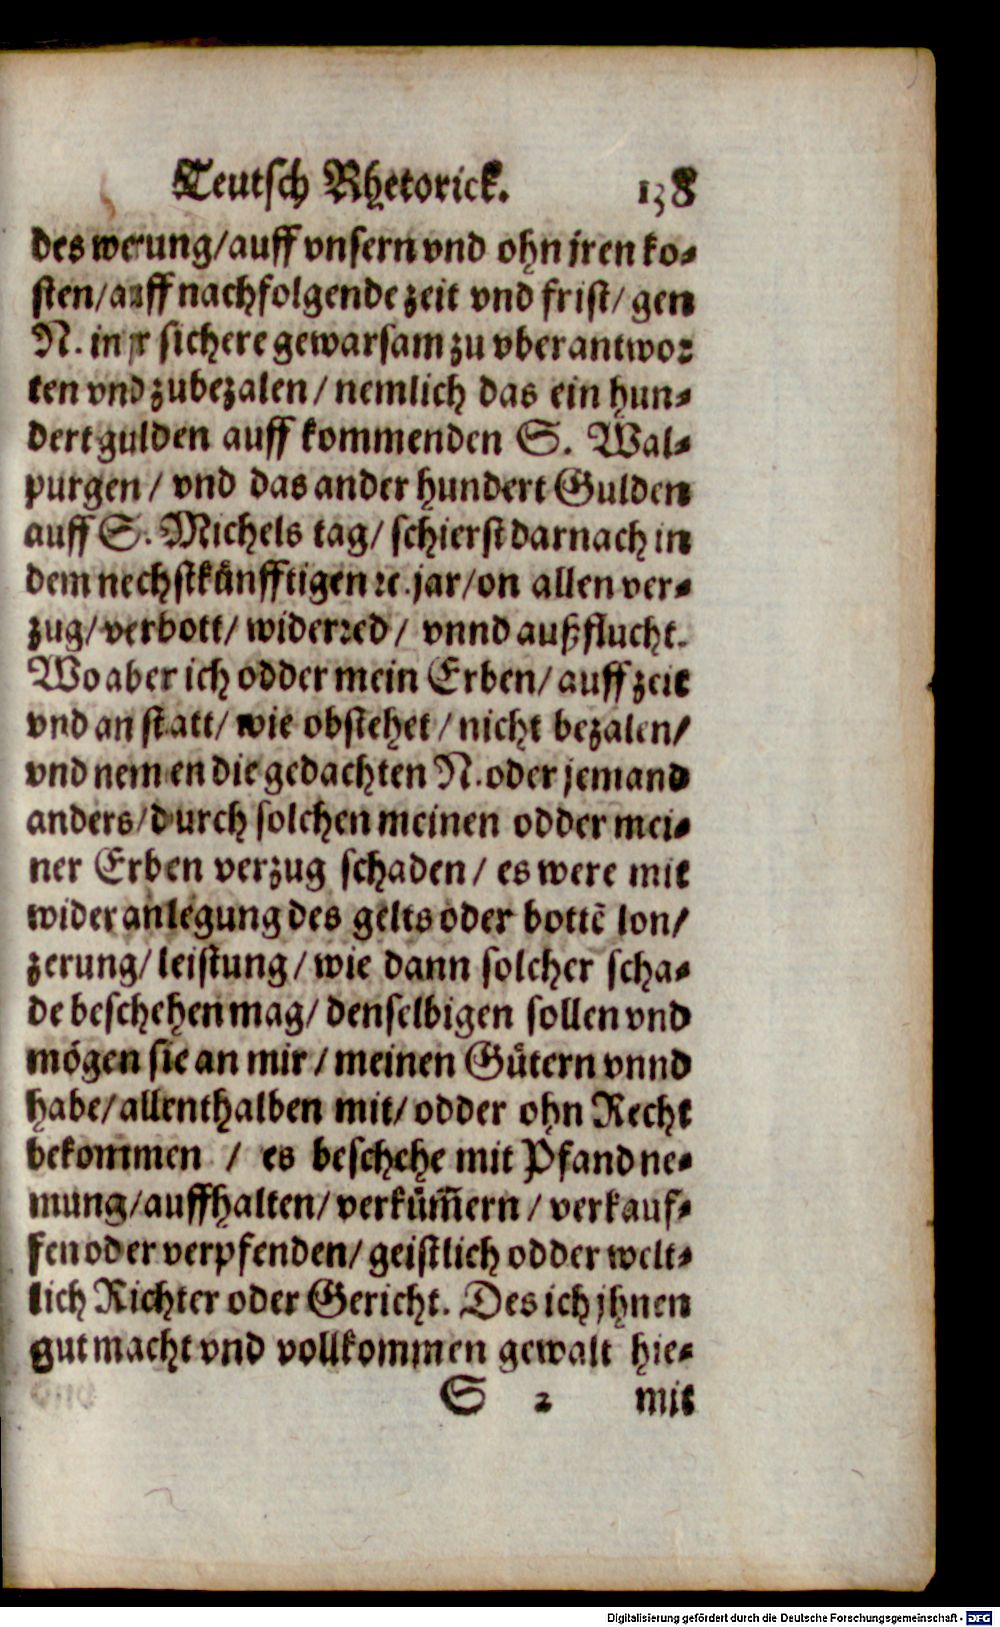 Teutsch Rhetorick. 138
des werung/auff vnsern vnd ohn jren ko-
sten/auff nachfolgende zeit vnd frist/ gen
N. in jr sichere gewarsam zu vberantwor
ten vnd zubezalen / nemlich das ein hun-
dert gulden auff kommenden S. Wal-
purgen / vnd das ander hundert Gulden
auff S. Michels tag/ schierst darnach in
dem nechstkünfftigen ꝛc. jar/on allen ver-
zug/verbott/ widerred / vnnd außflucht.
Wo aber ich odder mein Erben/ auff zeit
vnd an statt/ wie obstehet / nicht bezalen/
vnd nemen die gedachten N. oder jemand
anders/durch solchen meinen odder mei-
ner Erben verzug schaden / es were mit
wider anlegung des gelts oder bottē lon/
zerung/ leistung / wie dann solcher scha-
de beschehen mag/ denselbigen sollen vnd
mögen sie an mir / meinen Gütern vnnd
habe/allenthalben mit/ odder ohn Recht
bekommen / es beschehe mit Pfand ne-
mung/auffhalten/ verküm̃ern / verkauf-
fen oder verpfenden/ geistlich odder welt-
lich Richter oder Gericht. Des ich jhnen
gut macht vnd vollkommen gewalt hie-
S 2 mit
Digitalisierung gefördert durch die Deutsche Forschungsgemeinschaft - DFG